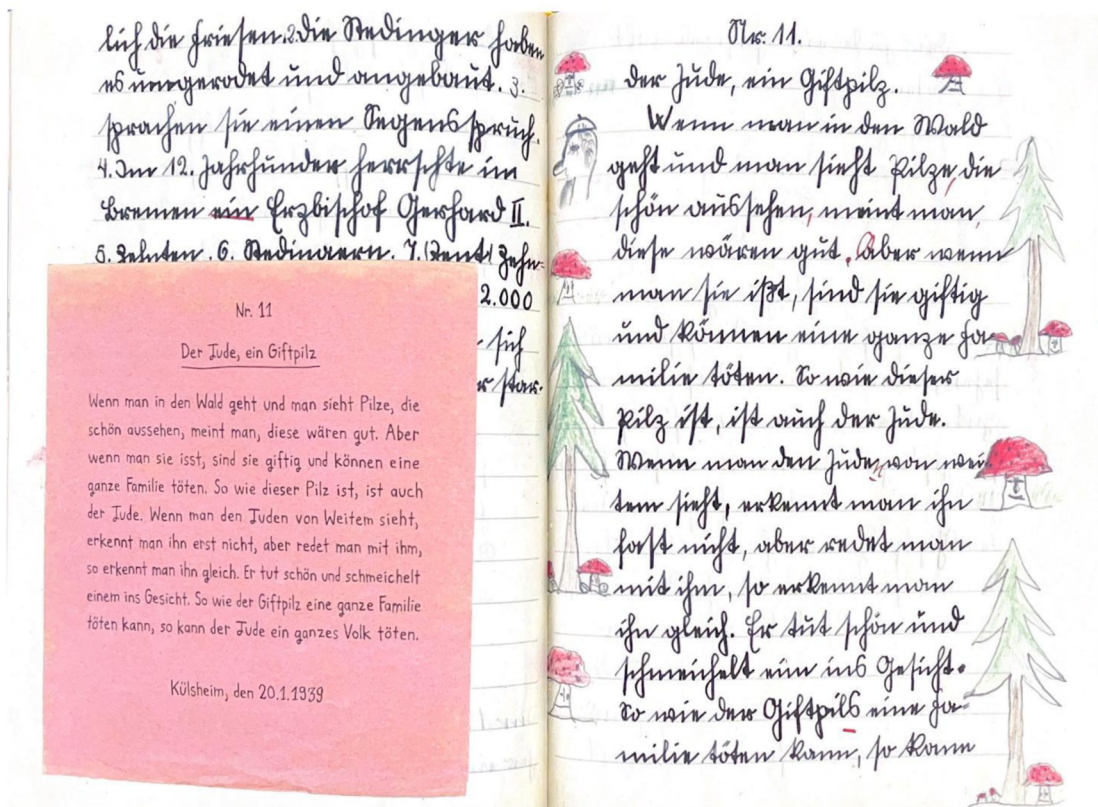 lich die Friesen. 2. Die Stedinger haben
es umgerodet und angebaut. 3.
sprachen sie einen Segensspruch.
4. Im 12. Jahrhunder herrschte im
Bremen ein Erzbischof Gerhard II.
5. Zehnten. 6. Stedingern. 7. Zehn-
2.000
sich
star-
Nr. 11
Der Jude, ein Giftpilz
Wenn man in den Wald geht und man sieht Pilze, die
schön aussehen, meint man, diese wären gut. Aber
wenn man sie isst, sind sie giftig und können eine
ganze Familie töten. So wie dieser Pilz ist, ist auch
der Jude. Wenn man den Juden von Weitem sieht,
erkennt man ihn erst nicht, aber redet man mit ihm,
so erkennt man ihn gleich. Er tut schön und schmeichelt
einem ins Gesicht. So wie der Giftpilz eine ganze Familie
töten kann, so kann der Jude ein ganzes Volk töten.
Külsheim, den 20.1.1939
Nr. 11.
der Jude, ein Giftpilz.
Wenn man in den Wald
geht und man sieht Pilze, die
schön aussehen, meint man,
diese wären gut. Aber wenn
man sie ißt, sind sie giftig
und können eine ganze Fa-
milie töten. So wie dieser
Pilz ist, ist auch der Jude.
Wenn man den Juden von wei-
tem sieht, erkennt man ihn
fast nicht, aber redet man
mit ihm, so erkennt man
ihn gleich. Er tut schön und
schmeichelt eim ins Gesicht.
So wie der Giftpils eine Fa-
milie töten kann, so kann